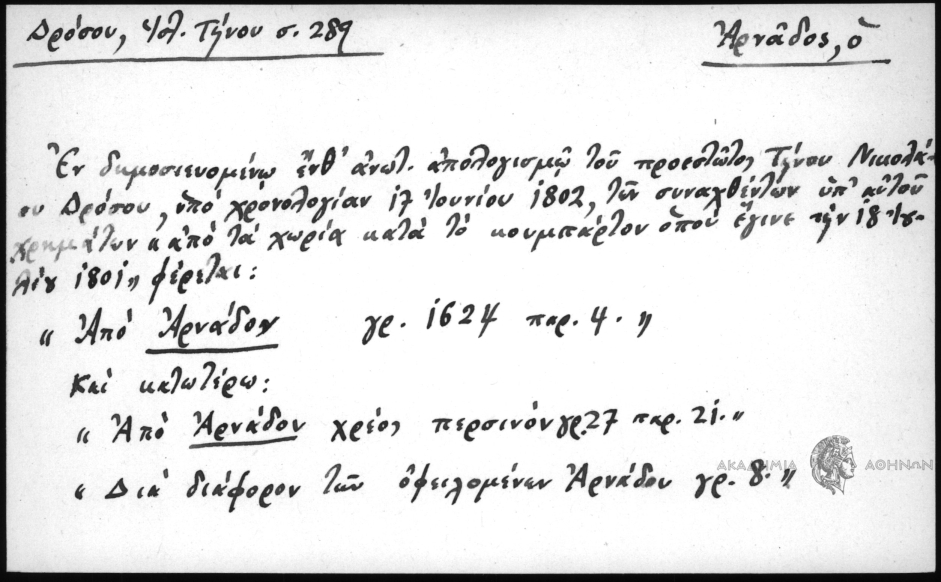 Δρόσου, Ἱσλ. Τήνου σ. 289
Ἀρνᾶδος, ὁ
Ἐν δημοσιευομένῳ ἔνθ' ἀνωτ. ἀπολογισμῷ τοῦ προεστῶτος Τήνου Νικολά-
ου Δρόσου, ὑπό χρονολογίαν 17 Ἰουνίου 1802, τῶν συναχθέντων ὑπ' αὐτοῦ
χρημάτων "ἀπό τά χωρία κατά τό κουμπάρτον ὁπού ἔγινε τήν 18 Ἰου-
λίου 1801" φέρεται:
"Ἀπό Ἀρνάδον γρ. 1624 παρ. 4."
Καί κατωτέρω:
"Ἀπό Ἀρνάδον χρέος περσινόν γρ. 27 παρ. 21."
"Διά διάφορον τῶν ὀφειλομένων Ἀρνάδου γρ. 8."
ΑΚΑΔΗΜΙΑ ΑΘΗΝΩΝ